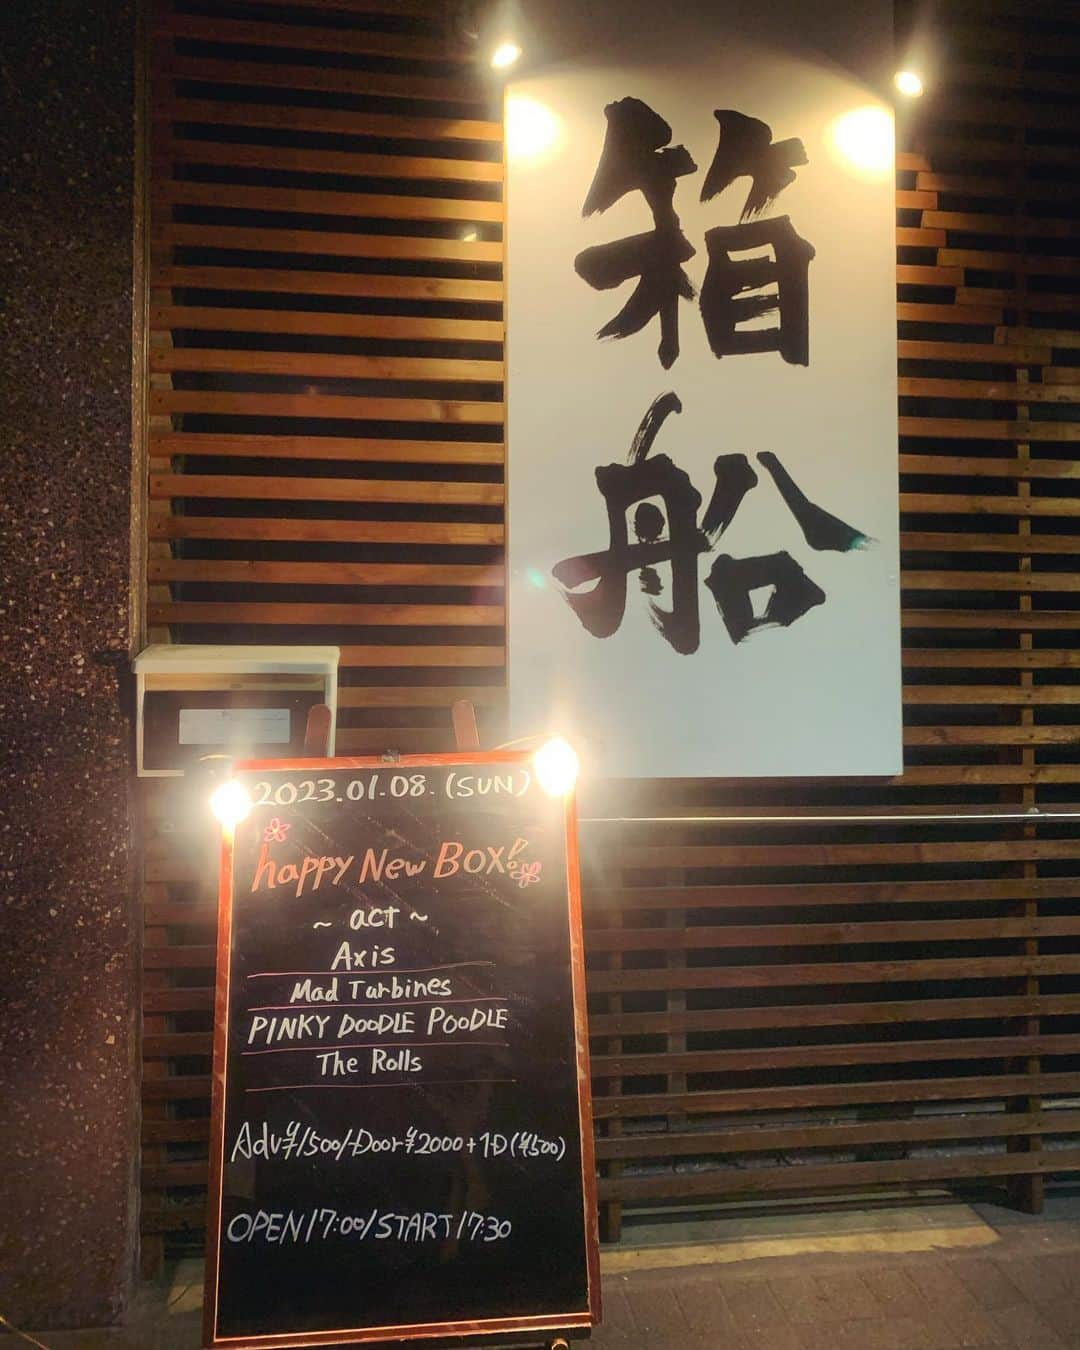 箱船
2023.01.08.(SUN)
happy New BOX!
~ act ~
Axis
Mad Turbines
PINKY DOODLE POODLE
The Rolls
Adv¥1500/Door¥2000+1D(¥500)
OPEN17:00/START17:30